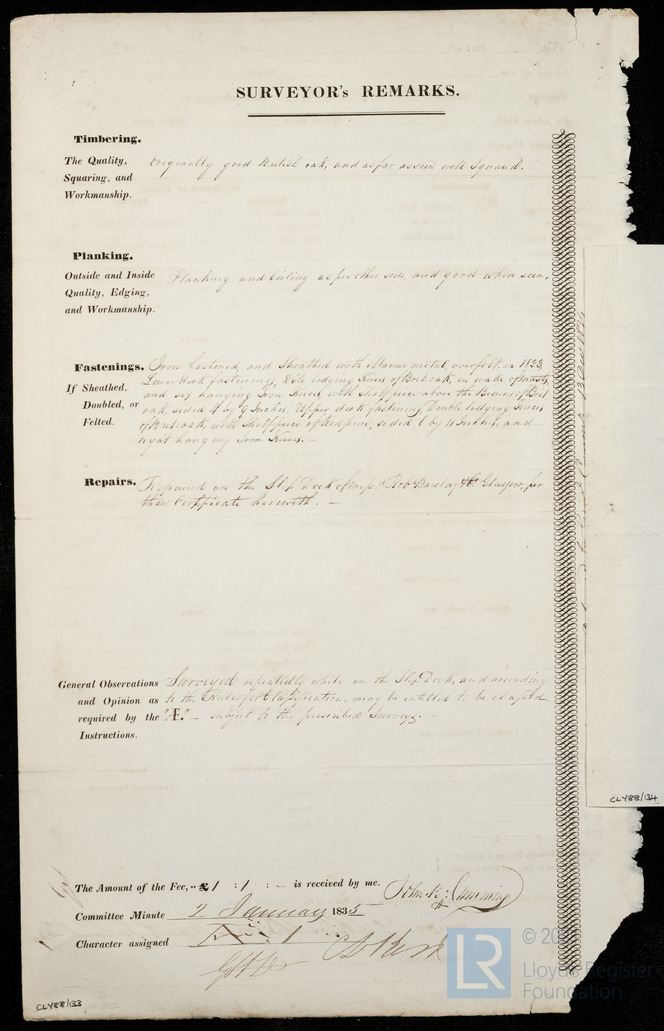 SURVEYOR's REMARKS.
Timbering.
The Quality, Squaring, and Workmanship.
Originally good British oak, and as far as seen well squared.
Planking.
Outside and Inside Quality, Edging, and Workmanship.
Planking and Ceiling as per other side, and good when seen,
Fastenings.
If Sheathed, Doubled, or Felted.
Iron fastened, and Sheathed with Marine metal, over felt, in 1833,
Lower deck fastenings, Dble lodging Knees of Brit. oak, in wake of masts,
and six hanging Iron Knees, with Shelfpiece above the Beams of Brit.
oak, sided 4 by 9 Inches, Upper deck fastenings, Double lodging Knees
of Brit. oak, with Shelfpiece of Red pine, sided 6 by 11 Inches, and
eight hanging Iron Knees. —
Repairs.
Repaired on the Slip Dock of Messrs Robt Barclay & Co Glasgow, per
their Certificate herewith. —
General Observations and Opinion as required by the Instructions.
Surveyed repeatedly while on the Slip Dock, and according
to the Rules for Classification, may be entitled to be classed
"Æ" — subject to the prescribed Surveys. —
The Amount of the Fee, £1 : 1 : – is received by me. John Cumming
Committee Minute 2 January 1835
Character assigned 1
CLY88/133
CLY88/134
LR
Lloyd's Register
Foundation